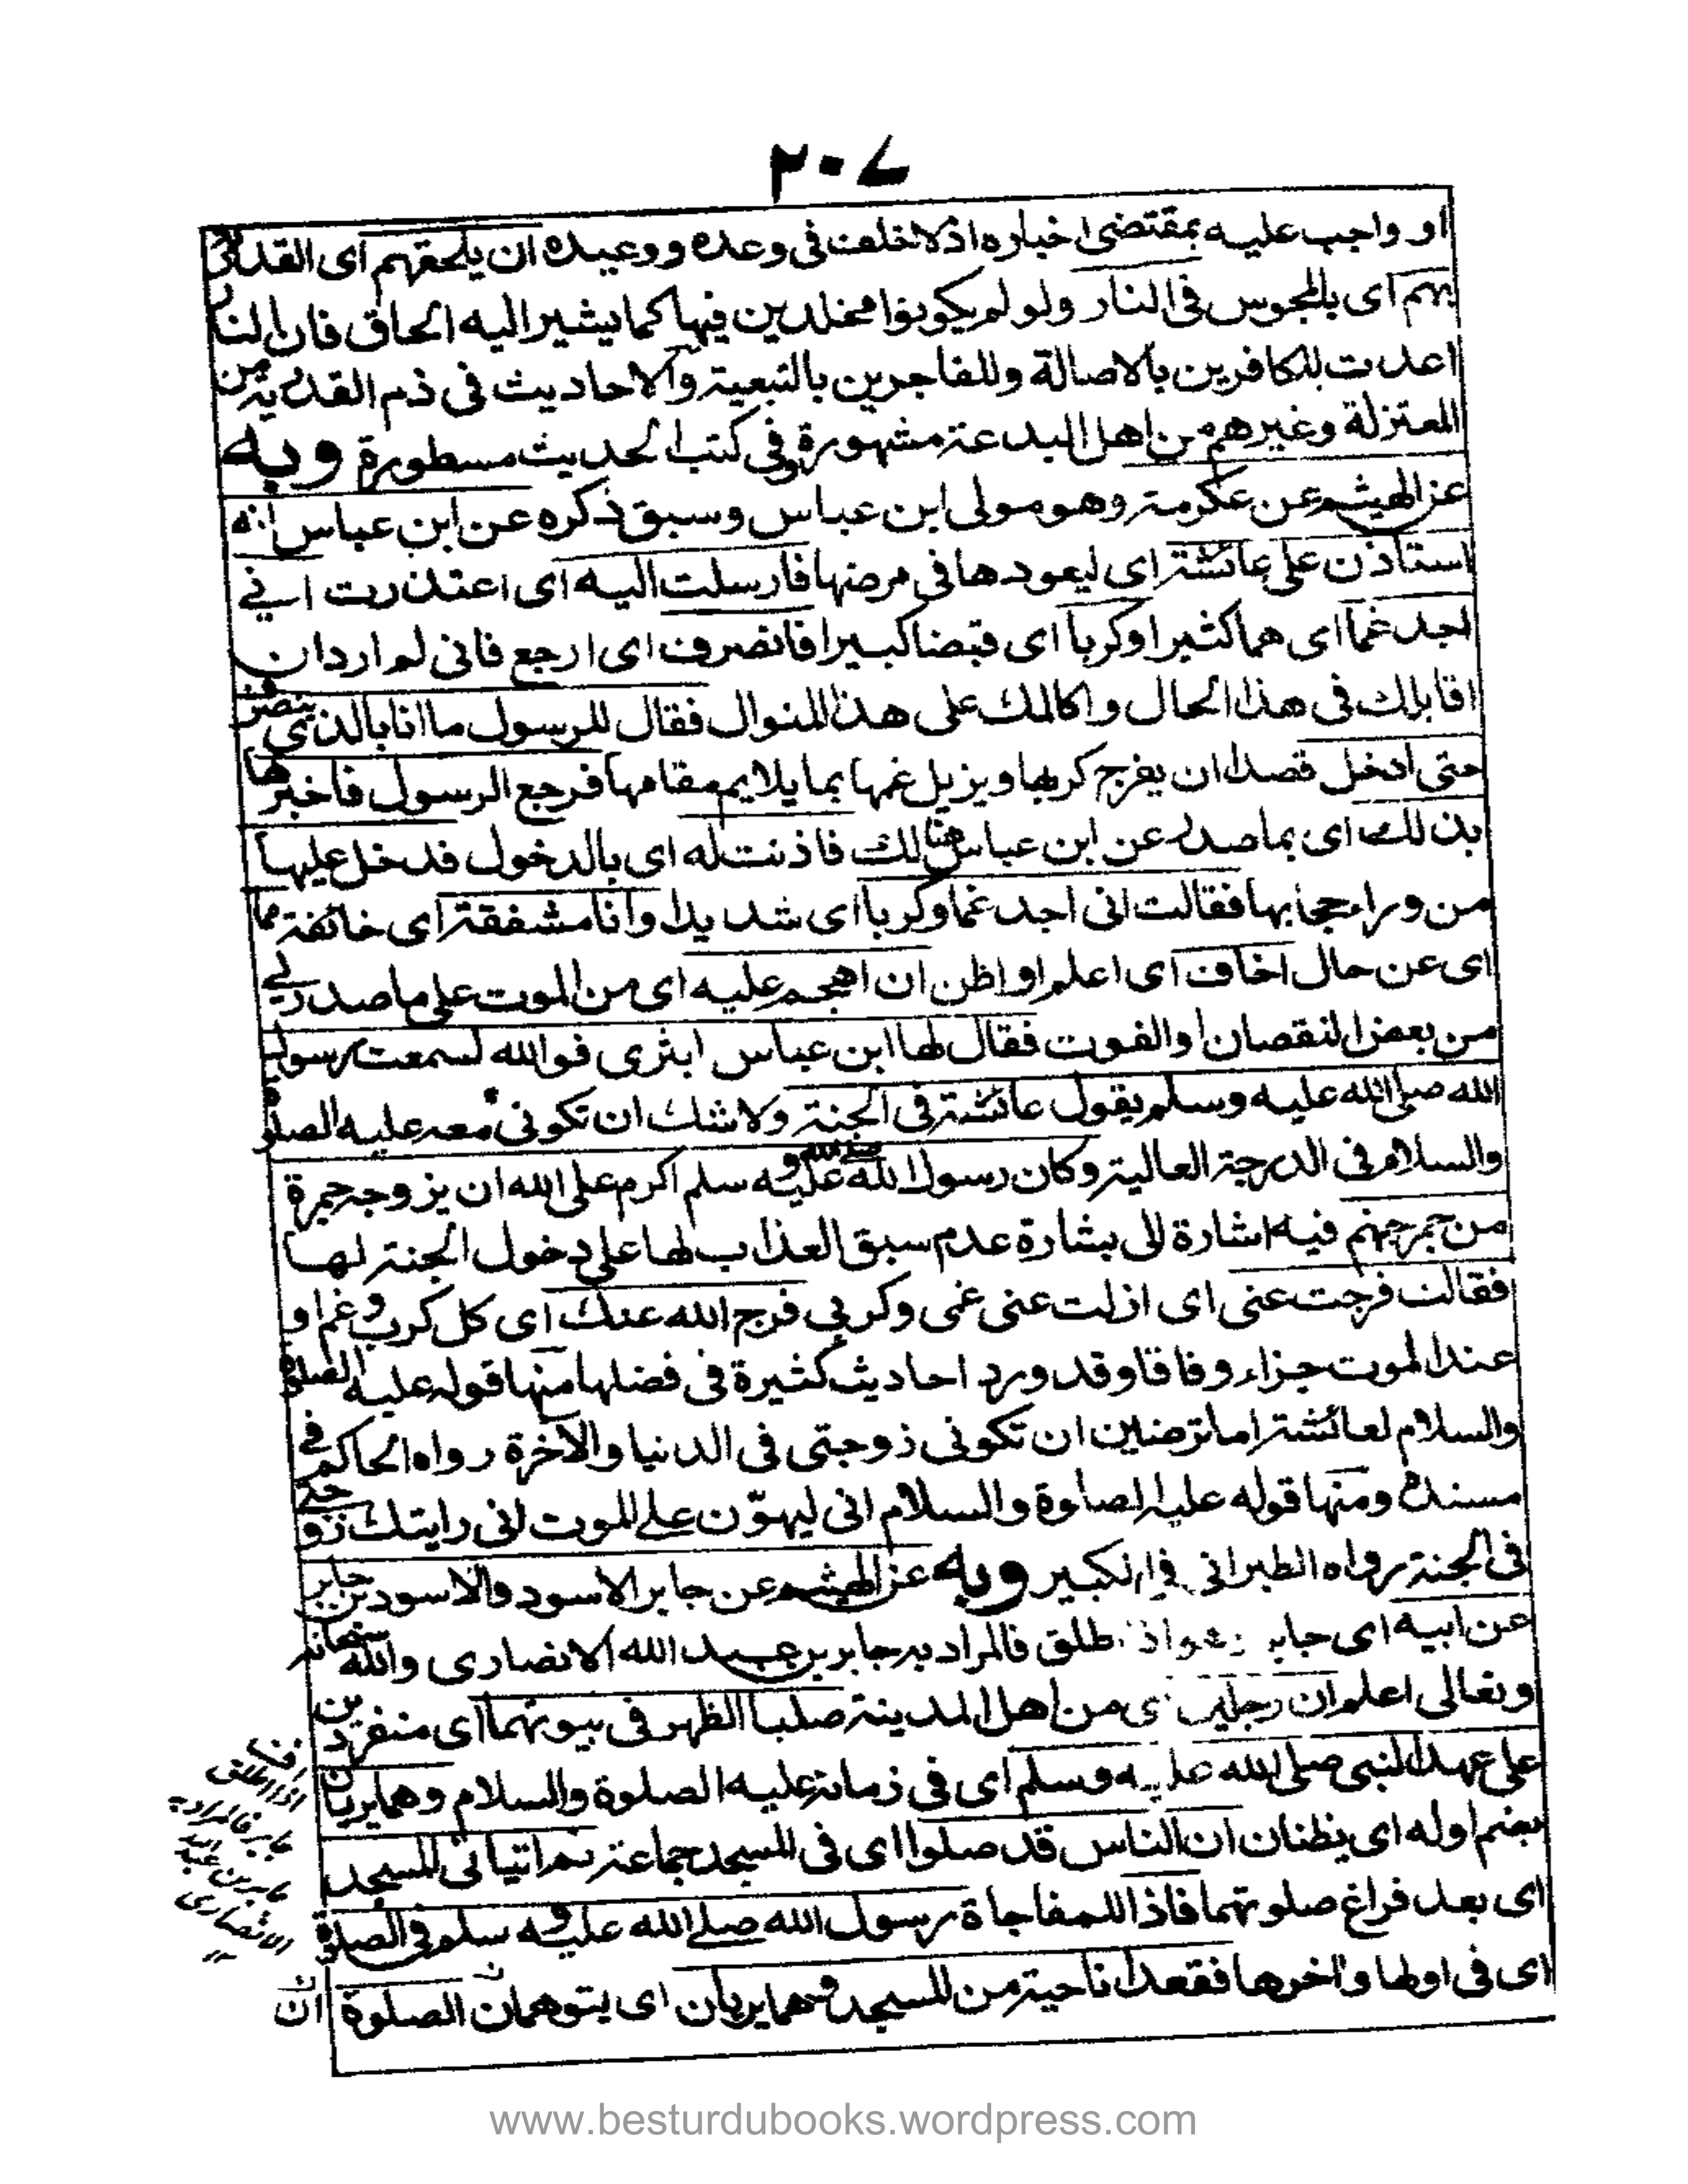 ٢٠٧
او واجب عليه بمقتضى اخباره اذ لا خلف فى وعده ووعيده ان يلحقهم اى القدرية
بهم اى بالمجوس فى النار ولو لم يكونوا مخلدين فيها كما يشير اليه الحاق فان النار
اعدت للكافرين بالاصالة وللفاجرين بالتبعية والاحاديث فى ذم القدرية من
المعتزلة وغيرهم من اهل البدعة مشهورة وفى كتب الحديث مسطورة وبه
عن الهيثم عن عكرمة وهو مولى ابن عباس وسبق ذكره عن ابن عباس انه
استاذن على عائشة اى ليعودها فى مرضها فارسلت اليه اى اعتذرت انى
اجد غما اى هما كثيرا وكربا اى قبضا كبيرا فانصرف اى ارجع فانى لم ارد ان
اقابلك فى هذا الحال واكالمك على هذا المنوال فقال للرسول ما انا بالذى ينصرف
حتى ادخل قصدا ان يفرج كربها ويزيل غمها بما يلايم مقامها فرجع الرسول فاخبرها
بذلك اى بما صدر عن ابن عباس هنالك فاذنت له اى بالدخول فدخل عليها
من وراء حجابها فقالت انى اجد غما وكربا اى شديدا وانا مشفقة اى خائفة مما
اى عن حال اخاف اى اعلم او اظن ان اهجم عليه اى من الموت على ما صدر لى
من بعض النقصان او الفوت فقال لها ابن عباس ابشرى فوالله لسمعت رسول
الله صلى الله عليه وسلم يقول عائشة فى الجنة ولا شك ان تكونى معه عليه الصلوة
والسلام فى الدرجة العالية وكان رسول الله صلى الله عليه وسلم اكرم على الله ان يزوجه جمرة
من جمر جهنم فيه اشارة الى بشارة عدم سبق العذاب لها على دخول الجنة لها
فقالت فرجت عنى اى ازلت عنى غمى وكربى فرج الله عنك اى كل كرب وغم او
عند الموت جزاء وفاقا وقد ورد احاديث كثيرة فى فضلها منها قوله عليه الصلوة
والسلام لعائشة اما ترضين ان تكونى زوجتى فى الدنيا والآخرة رواه الحاكم فى
مسنده ومنها قوله عليه الصلوة والسلام انى ليهوّن على الموت انى رايتك زوجتى
فى الجنة رواه الطبرانى فى الكبير وبه عن الهيثم عن جابر الاسود والاسود بن جابر
عن ابيه اى جابر اذ طلق فالمراد به جابر بن عبد الله الانصارى والله سبحانه
وتعالى اعلم ان رجلين اى من اهل المدينة صليا الظهر فى بيوتهما اى منفردين
على عهد النبى صلى الله عليه وسلم اى فى زمانه عليه الصلوة والسلام وهما يريان
بضم اوله اى يظنان ان الناس قد صلوا اى فى المسجد جماعة ثم اتيا الى المسجد
اى بعد فراغ صلوتهما فاذا للمفاجاة رسول الله صلى الله عليه وسلم فى الصلوة
اى فى اولها وآخرها فقعدا ناحية من المسجد وهما يريان اى يتوهمان ان الصلوة
ان
اذا اطلق
جابر فالمراد به
جابر بن عبد الله
الانصارى
www.besturdubooks.wordpress.com